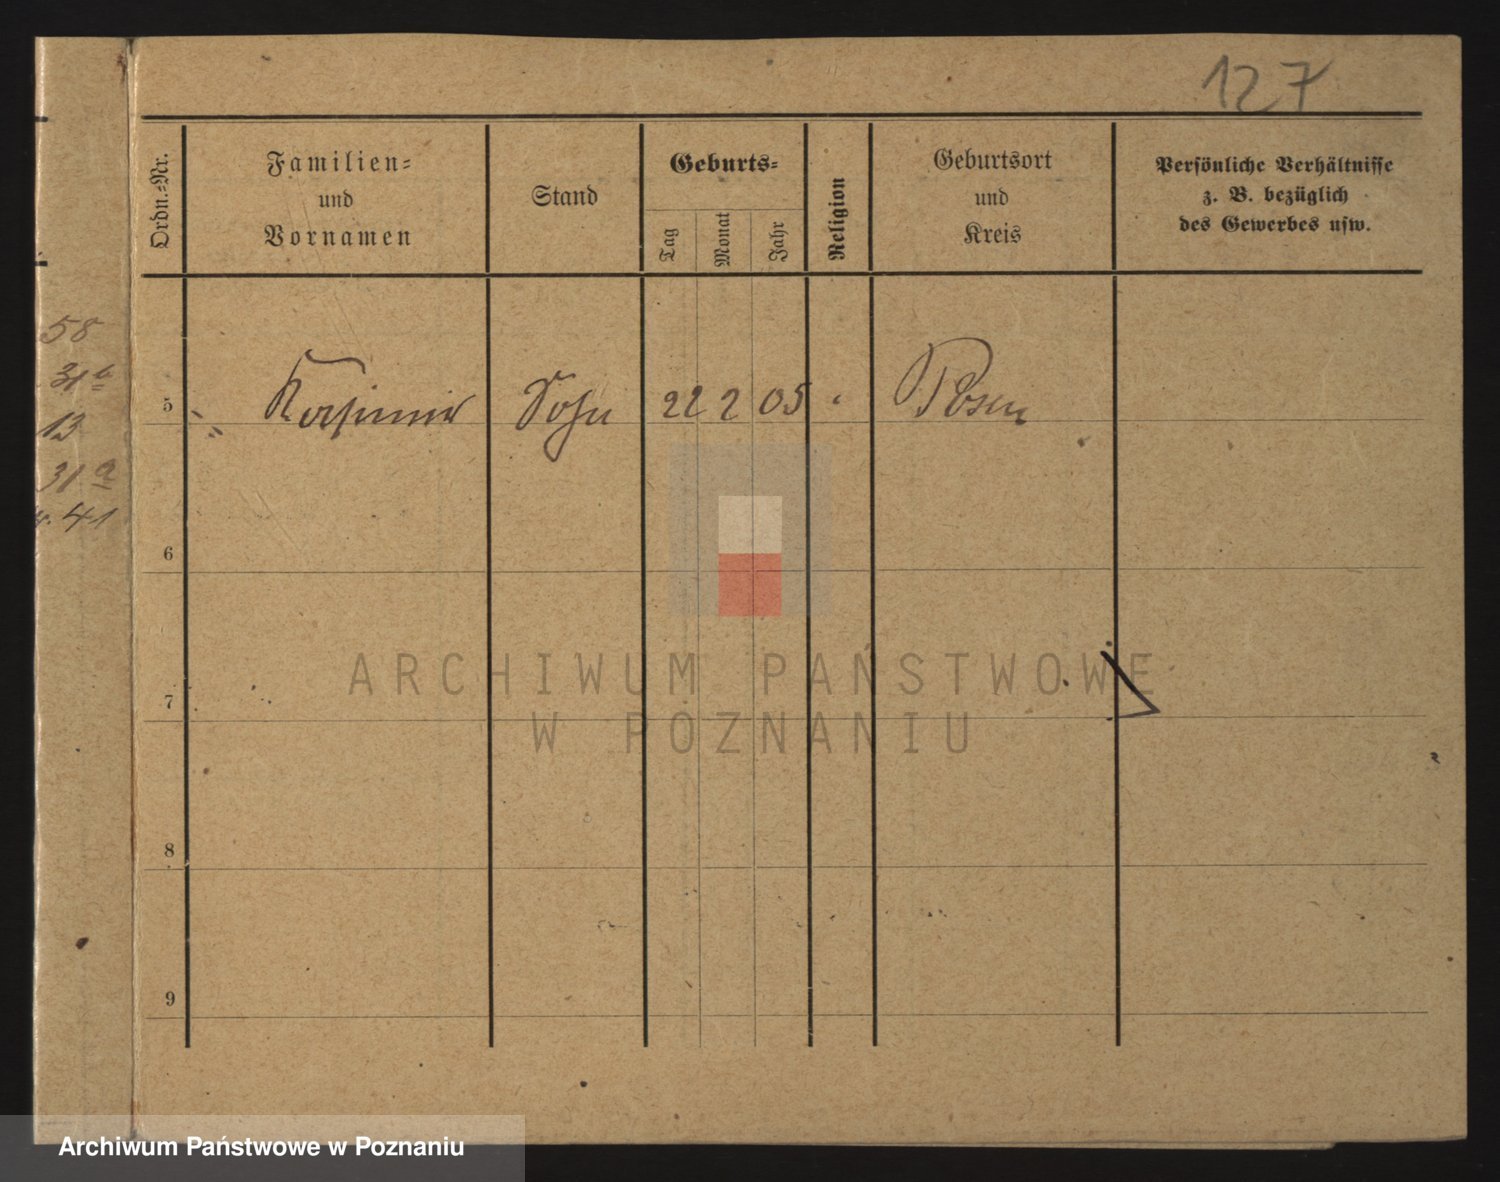 127
Ordn.-Nr.
Familien-
und
Vornamen
Stand
Geburts-
Tag
Monat
Jahr
Religion
Geburtsort
und
Kreis
Persönliche Verhältnisse
z. B. bezüglich
des Gewerbes usw.
58
31
13
31 a
41
5 " Kasimir Sohn 22 2 05 " Posen
6
7
8
9
ARCHIWUM PAŃSTWOWE
W POZNANIU
Archiwum Państwowe w Poznaniu